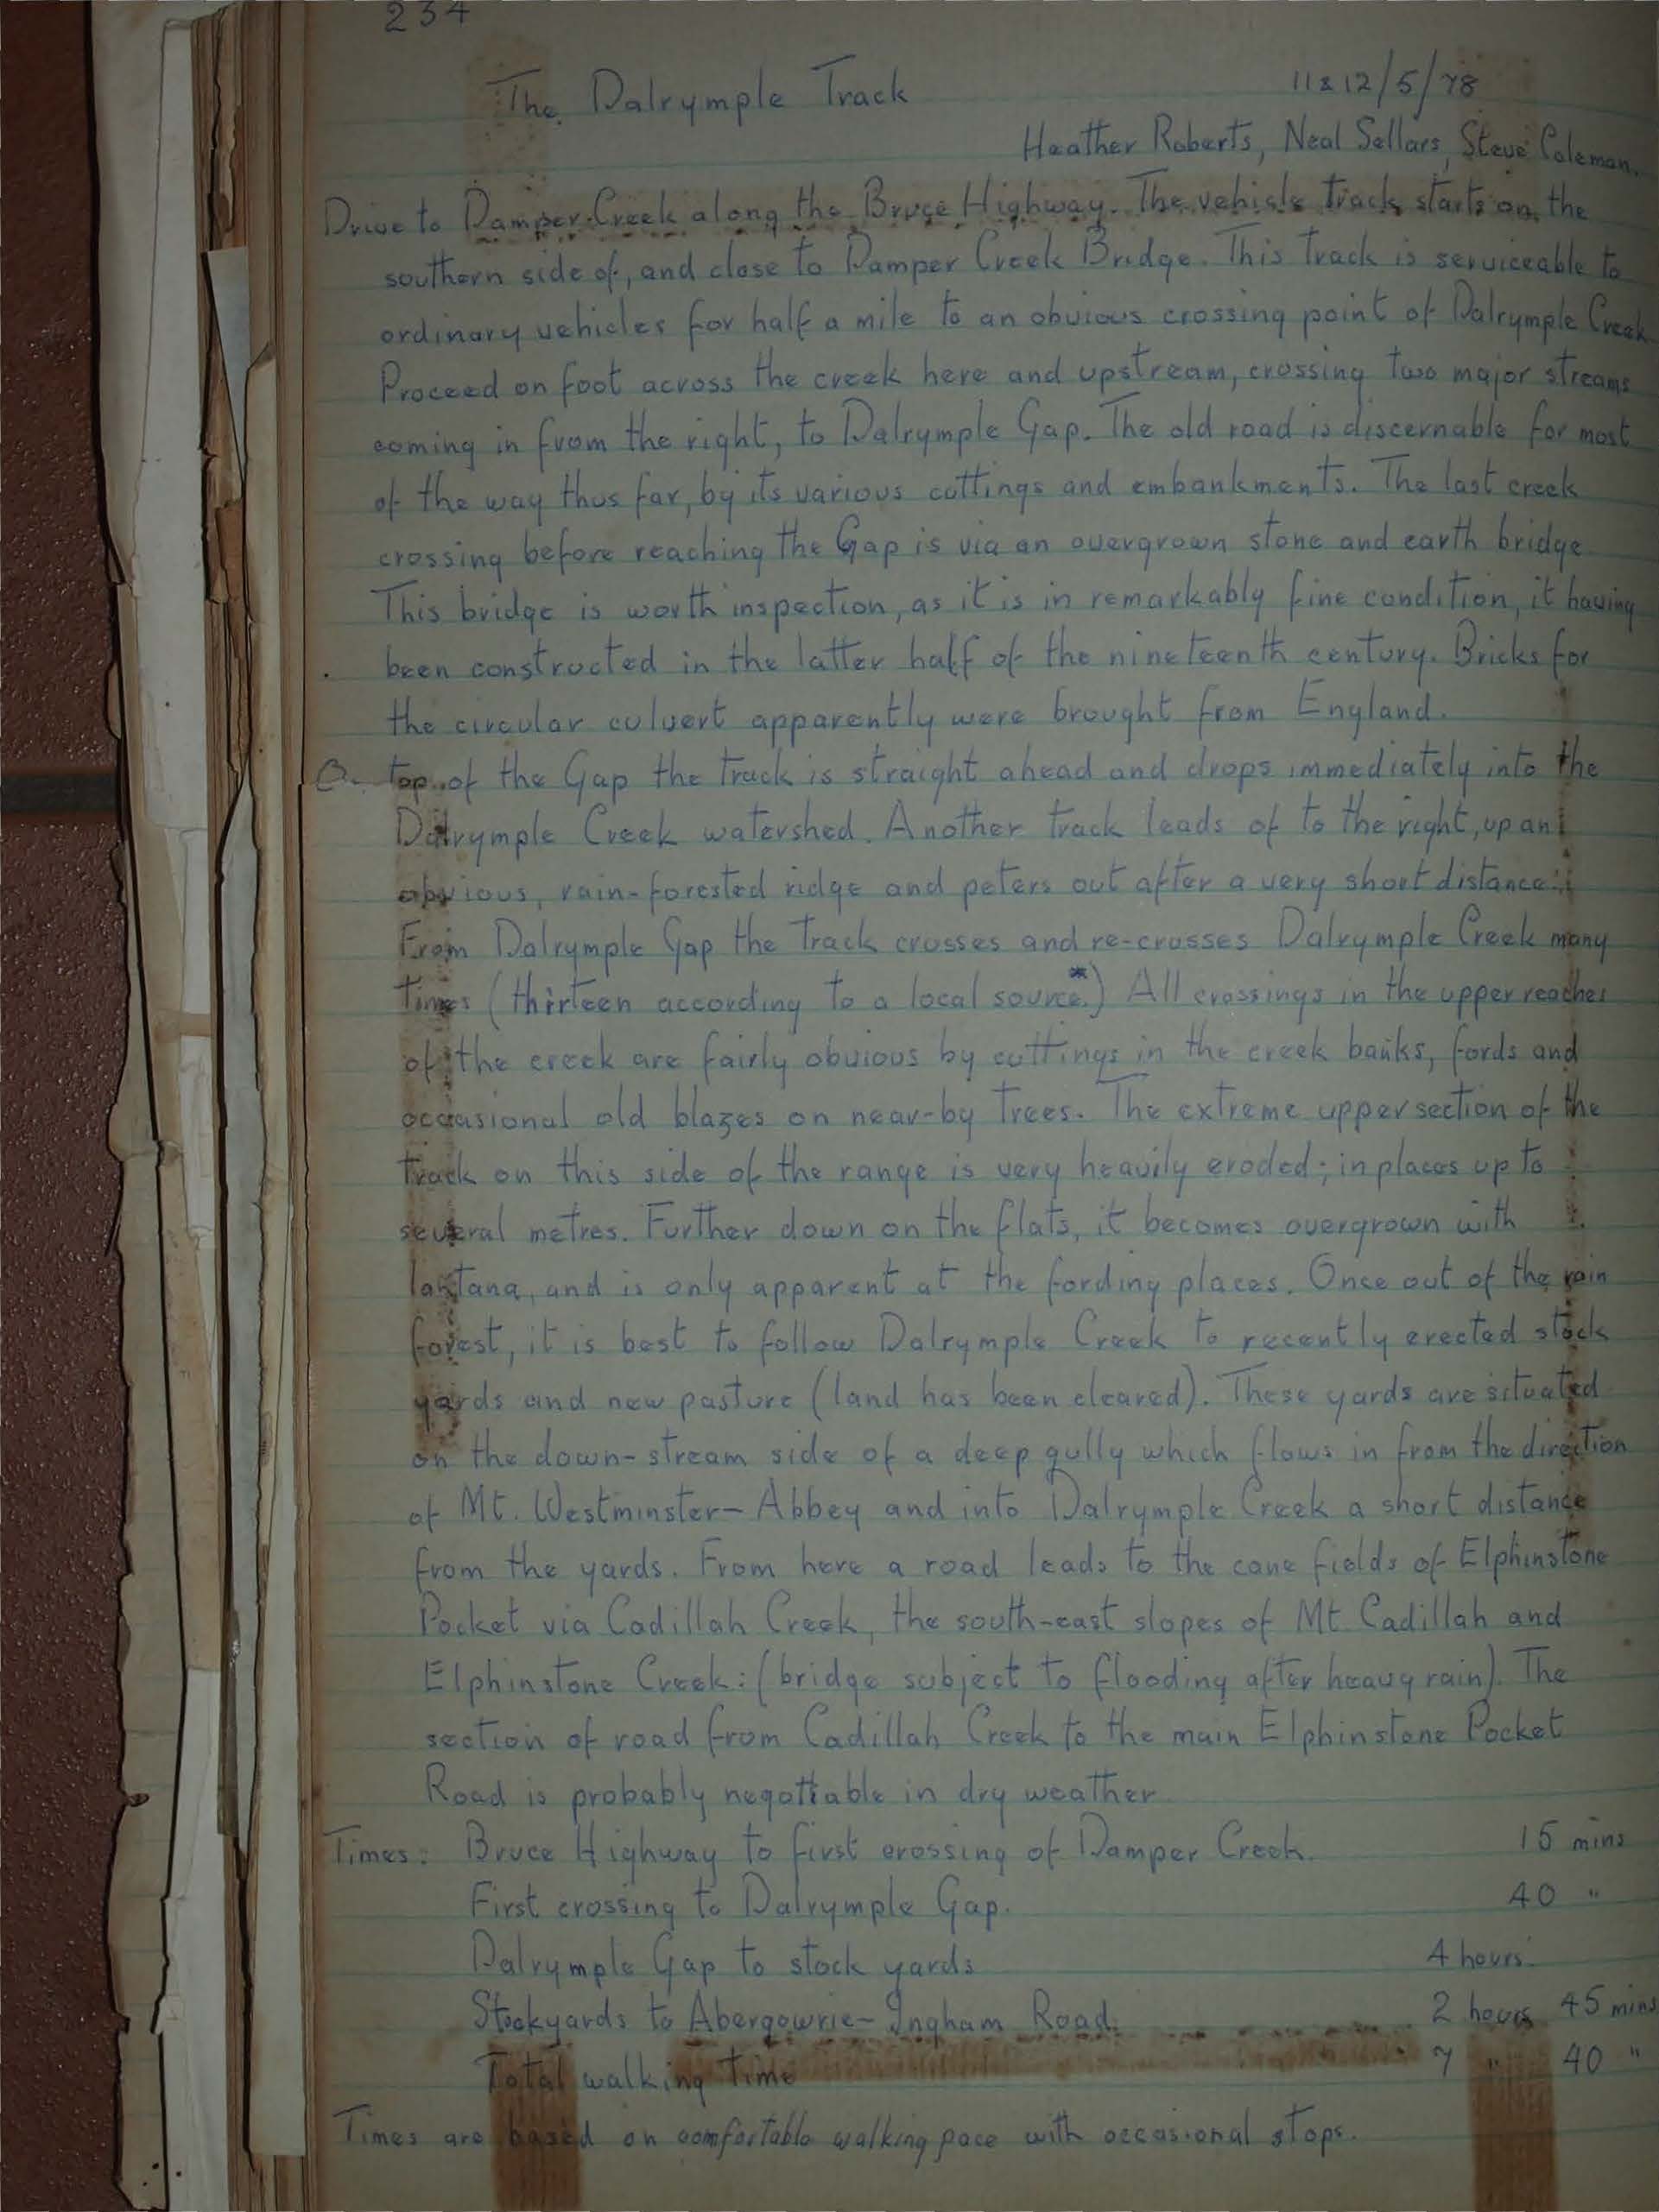 234
The Dalrymple Track
11 & 12/5/78
Heather Roberts, Neal Sellars, Steve Coleman.
Drive to Damper Creek along the Bruce Highway. The vehicle track starts on the
southern side of, and close to Damper Creek Bridge. This track is serviceable to
ordinary vehicles for half a mile to an obvious crossing point of Dalrymple Creek
Proceed on foot across the creek here and upstream, crossing two major streams
coming in from the right, to Dalrymple Gap. The old road is discernable for most
of the way thus far, by its various cuttings and embankments. The last creek
crossing before reaching the Gap is via an overgrown stone and earth bridge
This bridge is worth inspection, as it is in remarkably fine condition, it having
been constructed in the latter half of the nineteenth century. Bricks for
the circular culvert apparently were brought from England.
On top of the Gap the track is straight ahead and drops immediately into the
Dalrymple Creek watershed. Another track leads of to the right, up an
obvious, rain-forested ridge and peters out after a very short distance.
From Dalrymple Gap the track crosses and re-crosses Dalrymple Creek many
times (thirteen according to a local source.*) All crossings in the upper reaches
of the creek are fairly obvious by cuttings in the creek banks, fords and
occasional old blazes on near-by trees. The extreme upper section of the
track on this side of the range is very heavily eroded; in places up to
several metres. Further down on the flats, it becomes overgrown with
lantana, and is only apparent at the fording places. Once out of the rain
forest, it is best to follow Dalrymple Creek to recently erected stock
yards and new pasture (land has been cleared). These yards are situated
on the down-stream side of a deep gully which flows in from the direction
of Mt. Westminster-Abbey and into Dalrymple Creek a short distance
from the yards. From here a road leads to the cane fields of Elphinstone
Pocket via Cadillah Creek, the south-east slopes of Mt Cadillah and
Elphinstone Creek: (bridge subject to flooding after heavy rain). The
section of road from Cadillah Creek to the main Elphinstone Pocket
Road is probably negotiable in dry weather
Times: Bruce Highway to first crossing of Damper Creek. 15 mins
First crossing to Dalrymple Gap. 40 "
Dalrymple Gap to stock yards 4 hours.
Stockyards to Abergowrie-Ingham Road. 2 hours 45 mins
Total walking time 7 " 40 "
Times are based on comfortable walking pace with occasional stops.